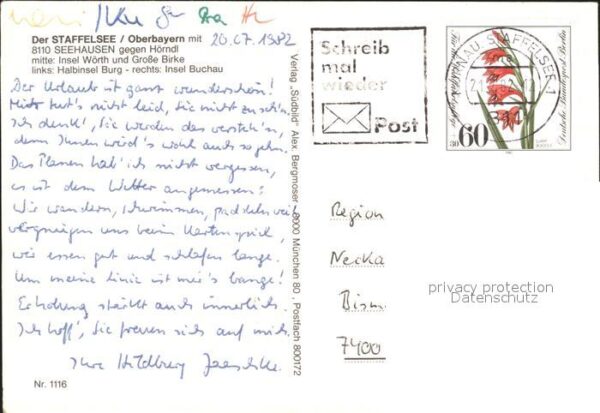 Der STAFFELSEE / Oberbayern mit 20.07.1982
8110 SEEHAUSEN gegen Hörndl
mitte: Insel Wörth und Große Birke
links: Halbinsel Burg - rechts: Insel Buchau
Der Urlaub ist ganz wunderschön!
Mir tut's nicht leid, Sie nicht zu seh'n.
Ich denk', Sie werden das versteh'n,
denn Ihnen wird's wohl auch so geh'n.
Das Planen hab' ich nicht vergessen,
es ist dem Wetter angemessen:
Wir wandern, schwimmen, paddeln viel
vergnügen uns beim Kartenspiel,
wir essen gut und schlafen lange.
Um meine Linie ist mir's bange!
Erholung stärkt auch innerlich.
Ich hoff', Sie freuen sich auf mich.
Ihre Hildburg
Nr. 1116
Verlag „Südbild" Alex Bergmoser, 8000 München 80, Postfach 800172
Schreib
mal
wieder
Post
STAFFELSEE 1
Deutsche Bundespost Berlin
60
30
Region
Necka
Bism
7400
privacy protection
Datenschutz